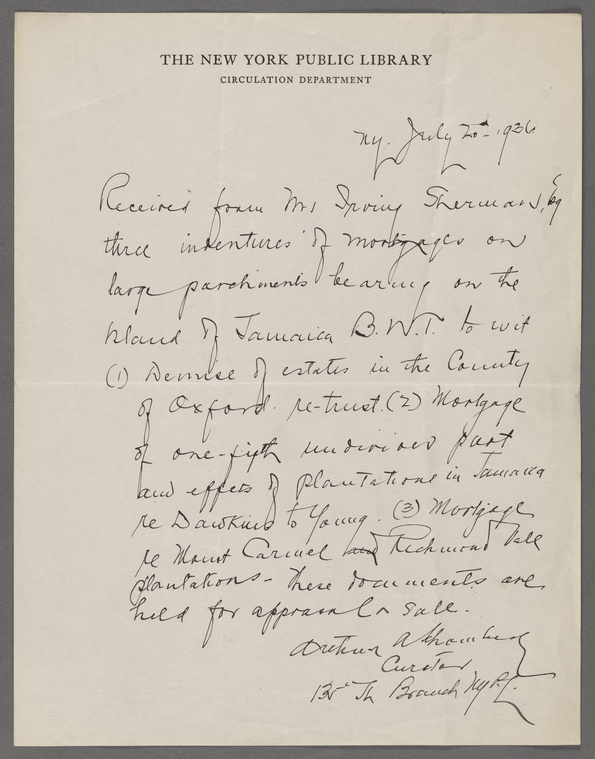 THE NEW YORK PUBLIC LIBRARY
CIRCULATION DEPARTMENT
Ny. July 20th 1936
Received from Mr Irving Sherman, Esq
three indentures of mortgages on
large parchments bearing on the
Island of Jamaica B.W.I. to wit
(1) Demise of estates in the County
of Oxford re-trust. (2) Mortgage
of one-fifth undivided part
and effects of plantations in Jamaica
re Dawkins to Young. (3) Mortgage
re Mount Carmel and Richmond Vale
plantations - these documents are
held for appraisal or sale.
Arthur A Schomburg
Curator
135th Branch NYPL